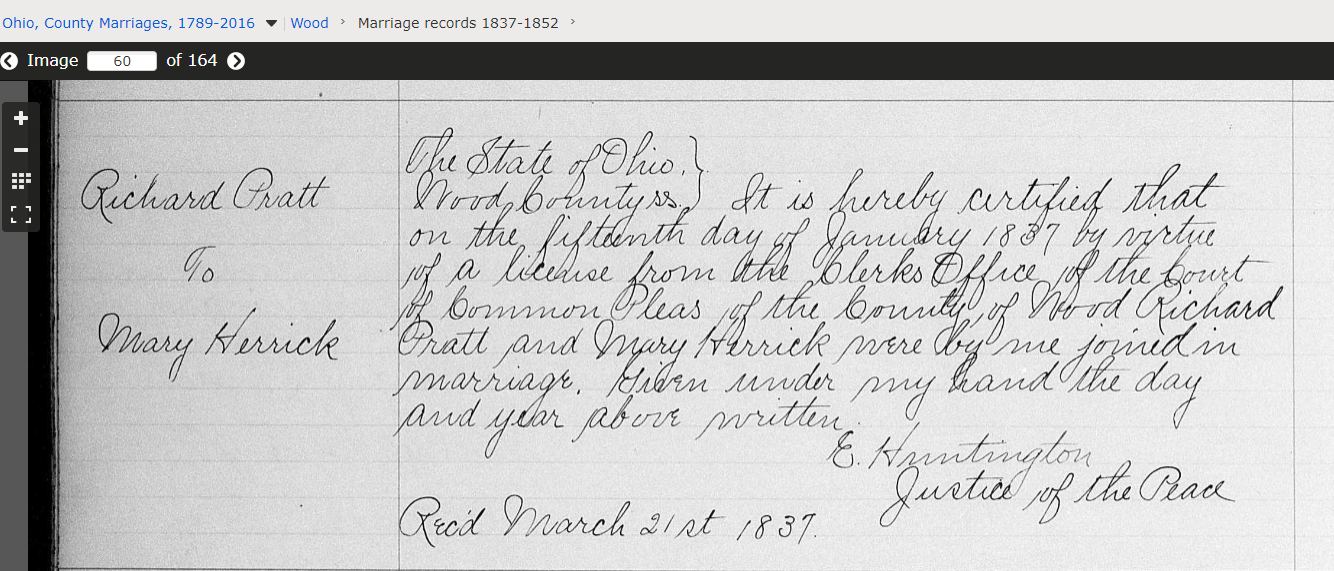 Ohio, County Marriages, 1789-2016 Wood › Marriage records 1837-1852 ›
Image 60 of 164
Richard Pratt
To
Mary Herrick
The State of Ohio. }
Wood County ss. } It is hereby certified that
on the fifteenth day of January 1837 by virtue
of a license from the Clerks Office of the Court
of Common Pleas of the County of Wood Richard
Pratt and Mary Herrick were by me joined in
marriage. Given under my hand the day
and year above written.
E. Huntington
Justice of the Peace
Rec'd March 21st 1837.